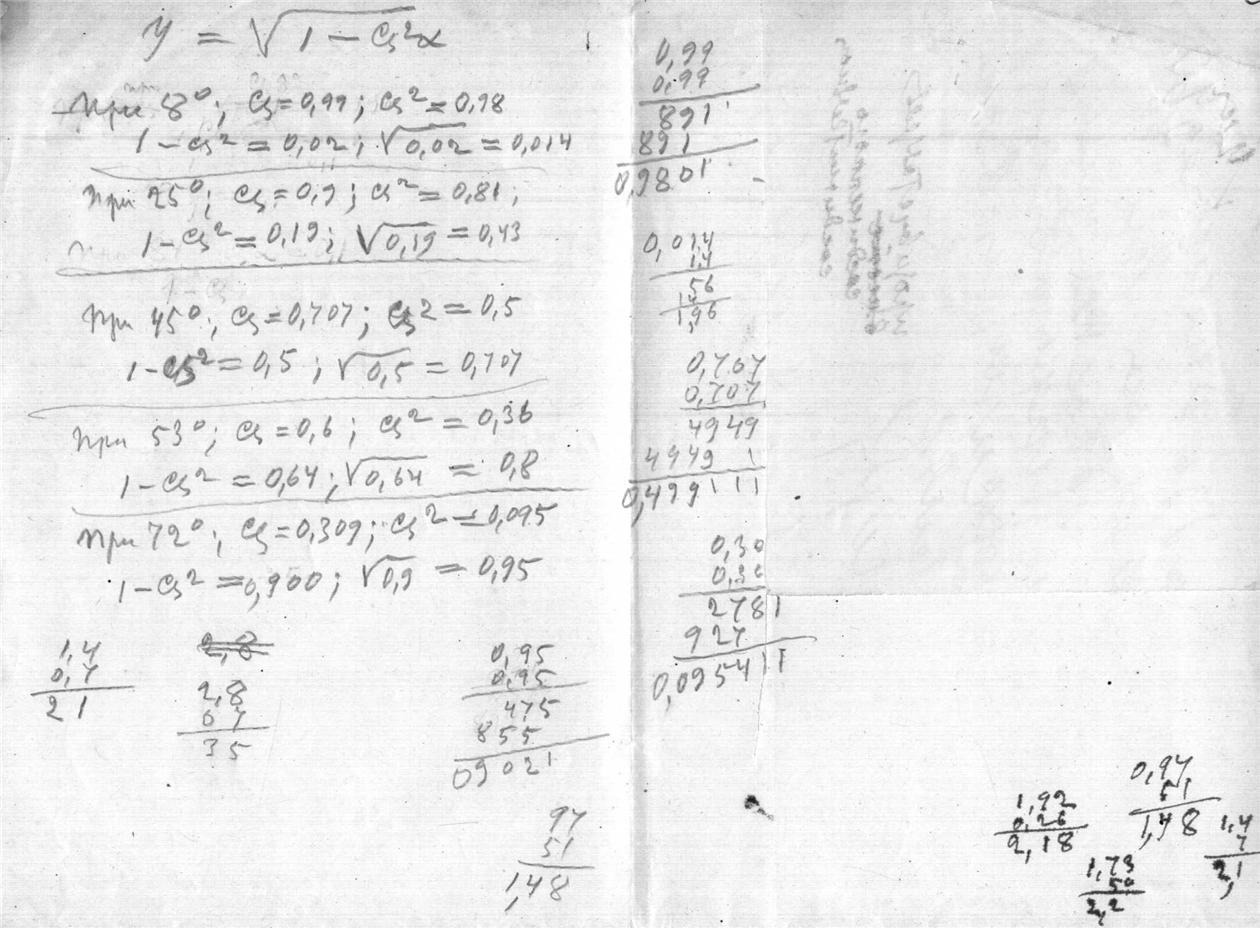 y = √1 - Cs²α
При 8°; Cs = 0,99; Cs² = 0,98
1 - Cs² = 0,02; √0,02 = 0,014
При 25°; Cs = 0,9; Cs² = 0,81;
1 - Cs² = 0,19; √0,19 = 0,43
При 45°; Cs = 0,707; Cs² = 0,5
1 - Cs² = 0,5; √0,5 = 0,707
При 53°; Cs = 0,6; Cs² = 0,36
1 - Cs² = 0,64; √0,64 = 0,8
При 72°; Cs = 0,309; Cs² = 0,095
1 - Cs² = 0,900; √0,9 = 0,95
1,4
0,7
21
2,8
2,8
07
35
0,95
0,95
475
855
09021
97
51
1,48
0,99
0,99
891
891
0,9801
0,014
14
56
14
1,96
0,707
0,707
4949
4949
0,499
0,30
0,30
2781
927
0,0954
1,92
0,26
2,18
0,97
51
1,48
1,4
7
2,1
1,73
50
2,2